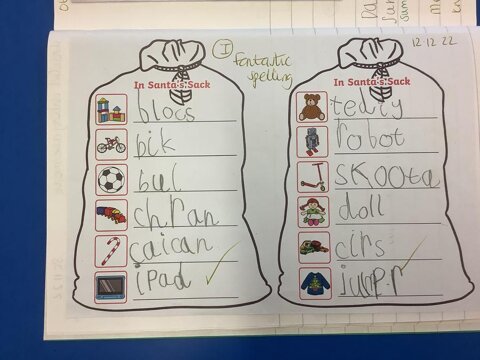 I
fantastic
spelling
12.12.22
In Santa's Sack
blocs
bik
bul
chran
caican
ipad
In Santa's Sack
teddy
robot
skoota
doll
cirs